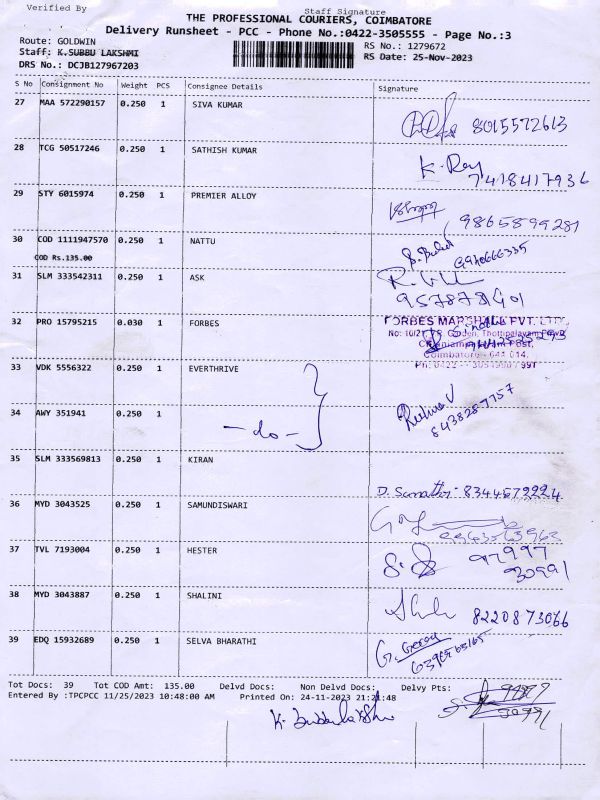 Verified By Staff Signature
THE PROFESSIONAL COURIERS, COIMBATORE
Delivery Runsheet - PCC - Phone No.:0422-3505555 - Page No.:3
Route: GOLDWIN
RS No.: 1279672
Staff: K.SUBBU LAKSHMI
RS Date: 25-Nov-2023
DRS No.: DCJB127967203
S No Consignment No Weight PCS Consignee Details Signature
27 MAA 572290157 0.250 1 SIVA KUMAR
8015572613
28 TCG 50517246 0.250 1 SATHISH KUMAR
K. Ray
7418417936
29 STY 6015974 0.250 1 PREMIER ALLOY
9865899281
30 COD 1111947570 0.250 1 NATTU
COD Rs.135.00
31 SLM 333542311 0.250 1 ASK
32 PRO 15795215 0.030 1 FORBES
FORBES MARSHALL PVT. LTD.
Coimbatore - 641 014.
33 VDK 5556322 0.250 1 EVERTHRIVE
34 AWY 351941 0.250 1
- do -
8438287757
35 SLM 333569813 0.250 1 KIRAN
8344572224
36 MYD 3043525 0.250 1 SAMUNDISWARI
37 TVL 7193004 0.250 1 HESTER
97997
30991
38 MYD 3043887 0.250 1 SHALINI
8220873066
39 EDQ 15932689 0.250 1 SELVA BHARATHI
Tot Docs: 39 Tot COD Amt: 135.00 Delvd Docs: Non Delvd Docs: Delvy Pts:
Entered By :TPCPCC 11/25/2023 10:48:00 AM Printed On: 24-11-2023 21:21:48
K. Subbulakshmi